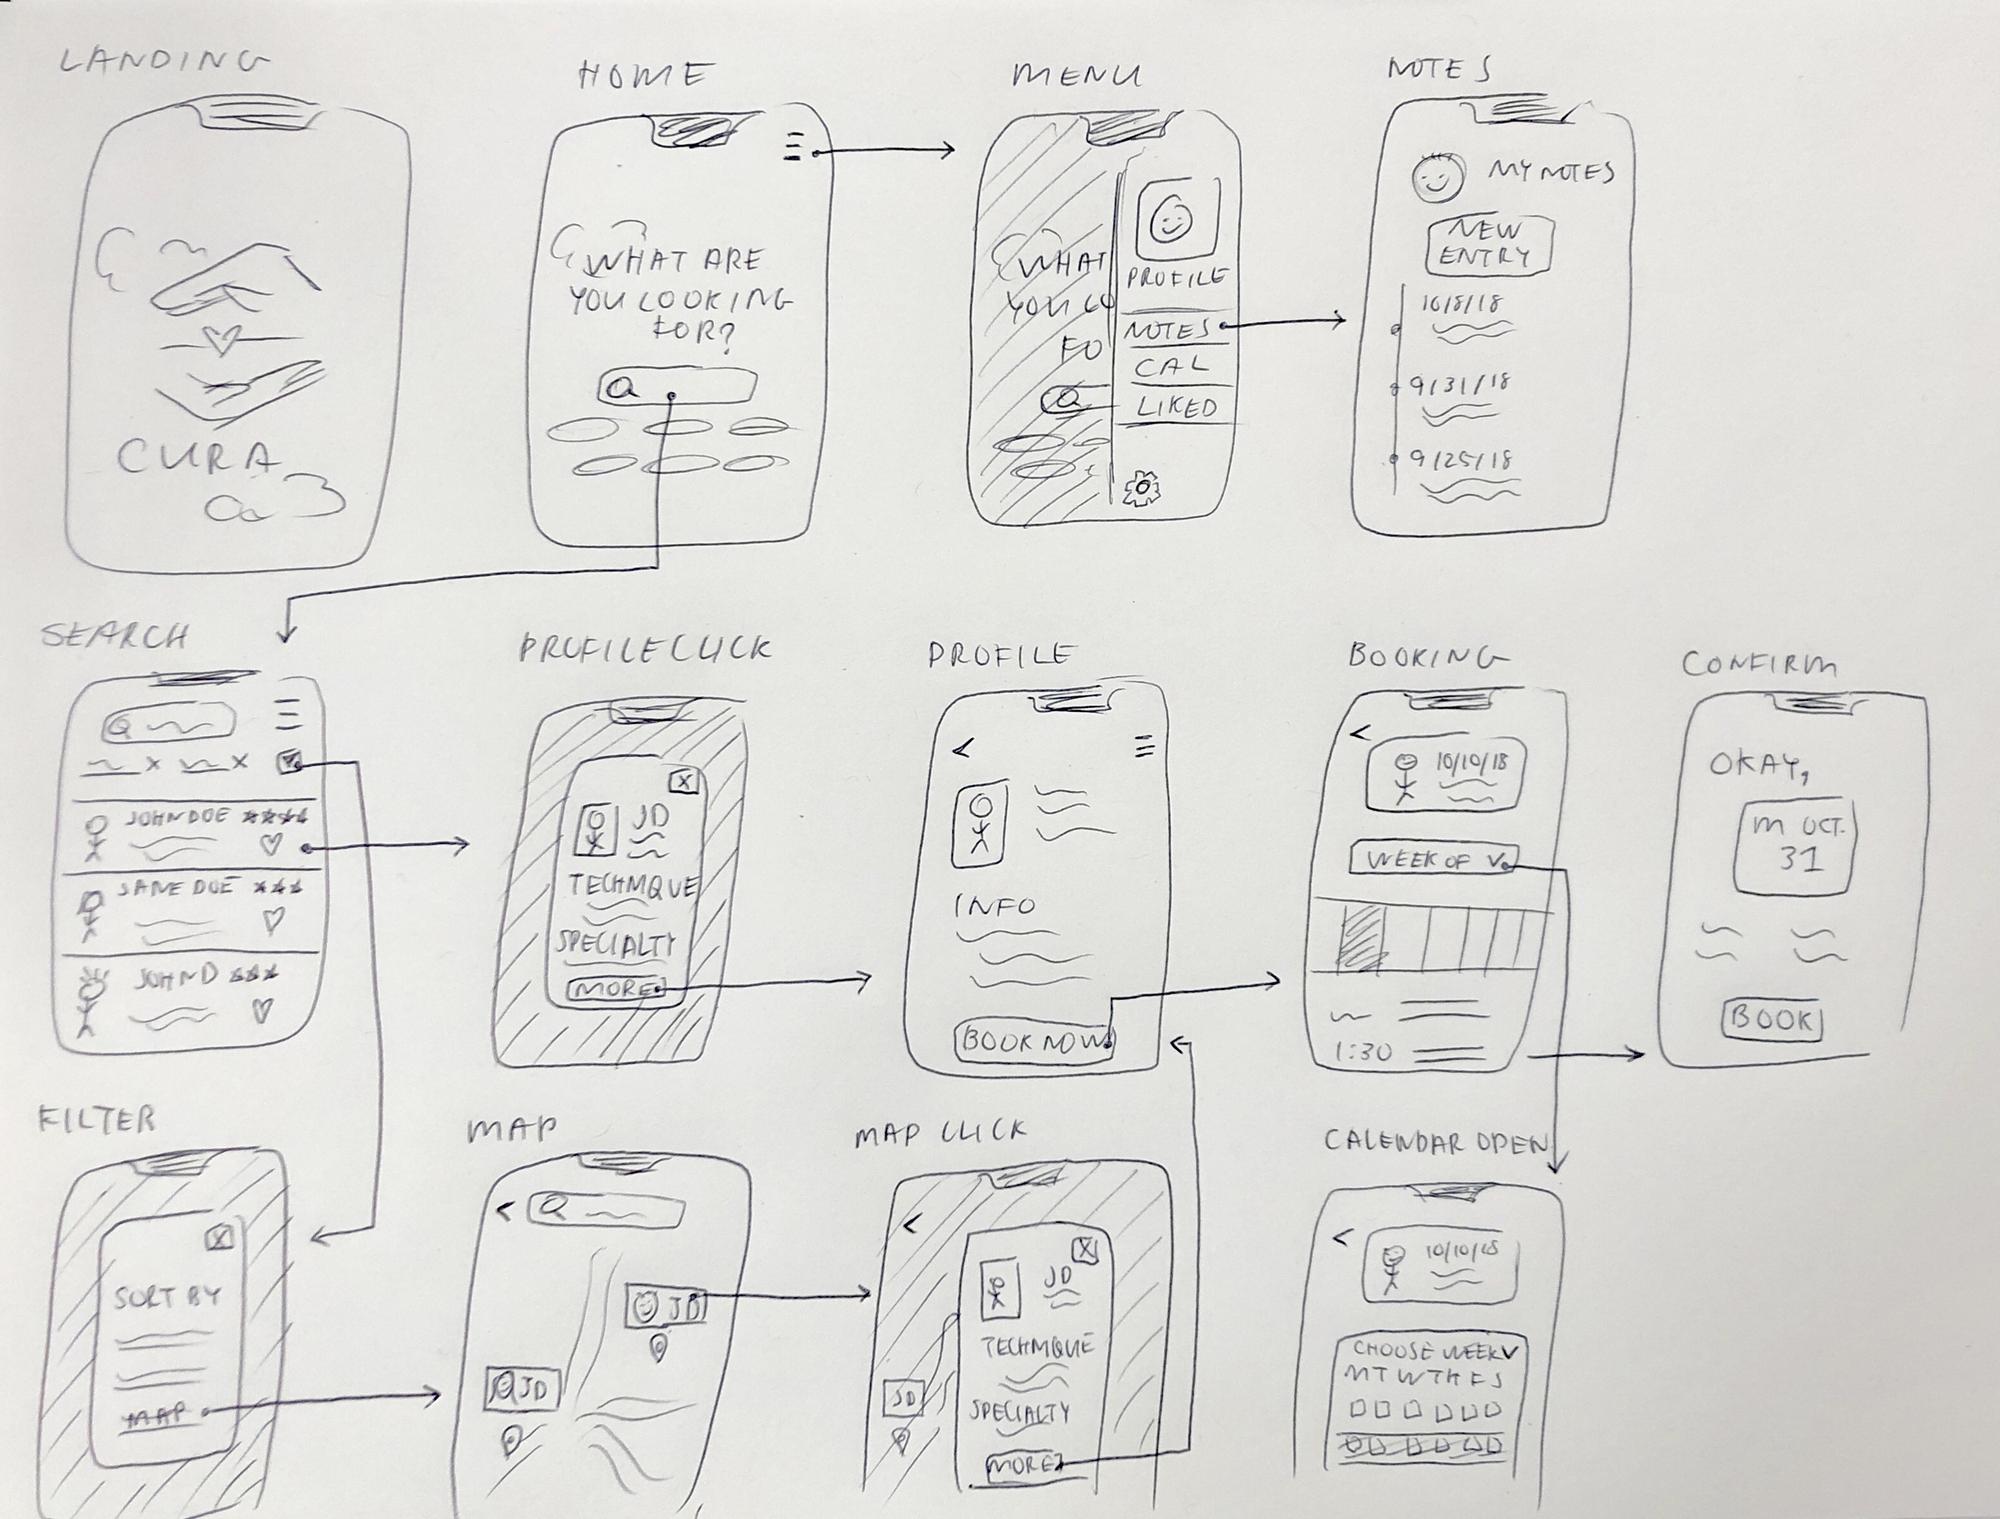 LANDING
CURA
HOME
WHAT ARE
YOU LOOKING
FOR?
MENU
WHAT
YOU LO
FO
PROFILE
NOTES
CAL
LIKED
NOTES
MY NOTES
NEW
ENTRY
10/8/18
9/31/18
9/25/18
SEARCH
JOHN DOE
JANE DOE
JOHN D
PROFILE CLICK
X
JD
TECHNIQUE
SPECIALTY
MORE
PROFILE
INFO
BOOK NOW
BOOKING
10/10/18
WEEK OF V
1:30
CONFIRM
OKAY,
M OCT.
31
BOOK
FILTER
X
SORT BY
MAP
MAP
JD
JD
MAP CLICK
X
JD
TECHNIQUE
JD
SPECIALTY
MORE
CALENDAR OPEN
10/10/18
CHOOSE WEEK V
M T W TH F S